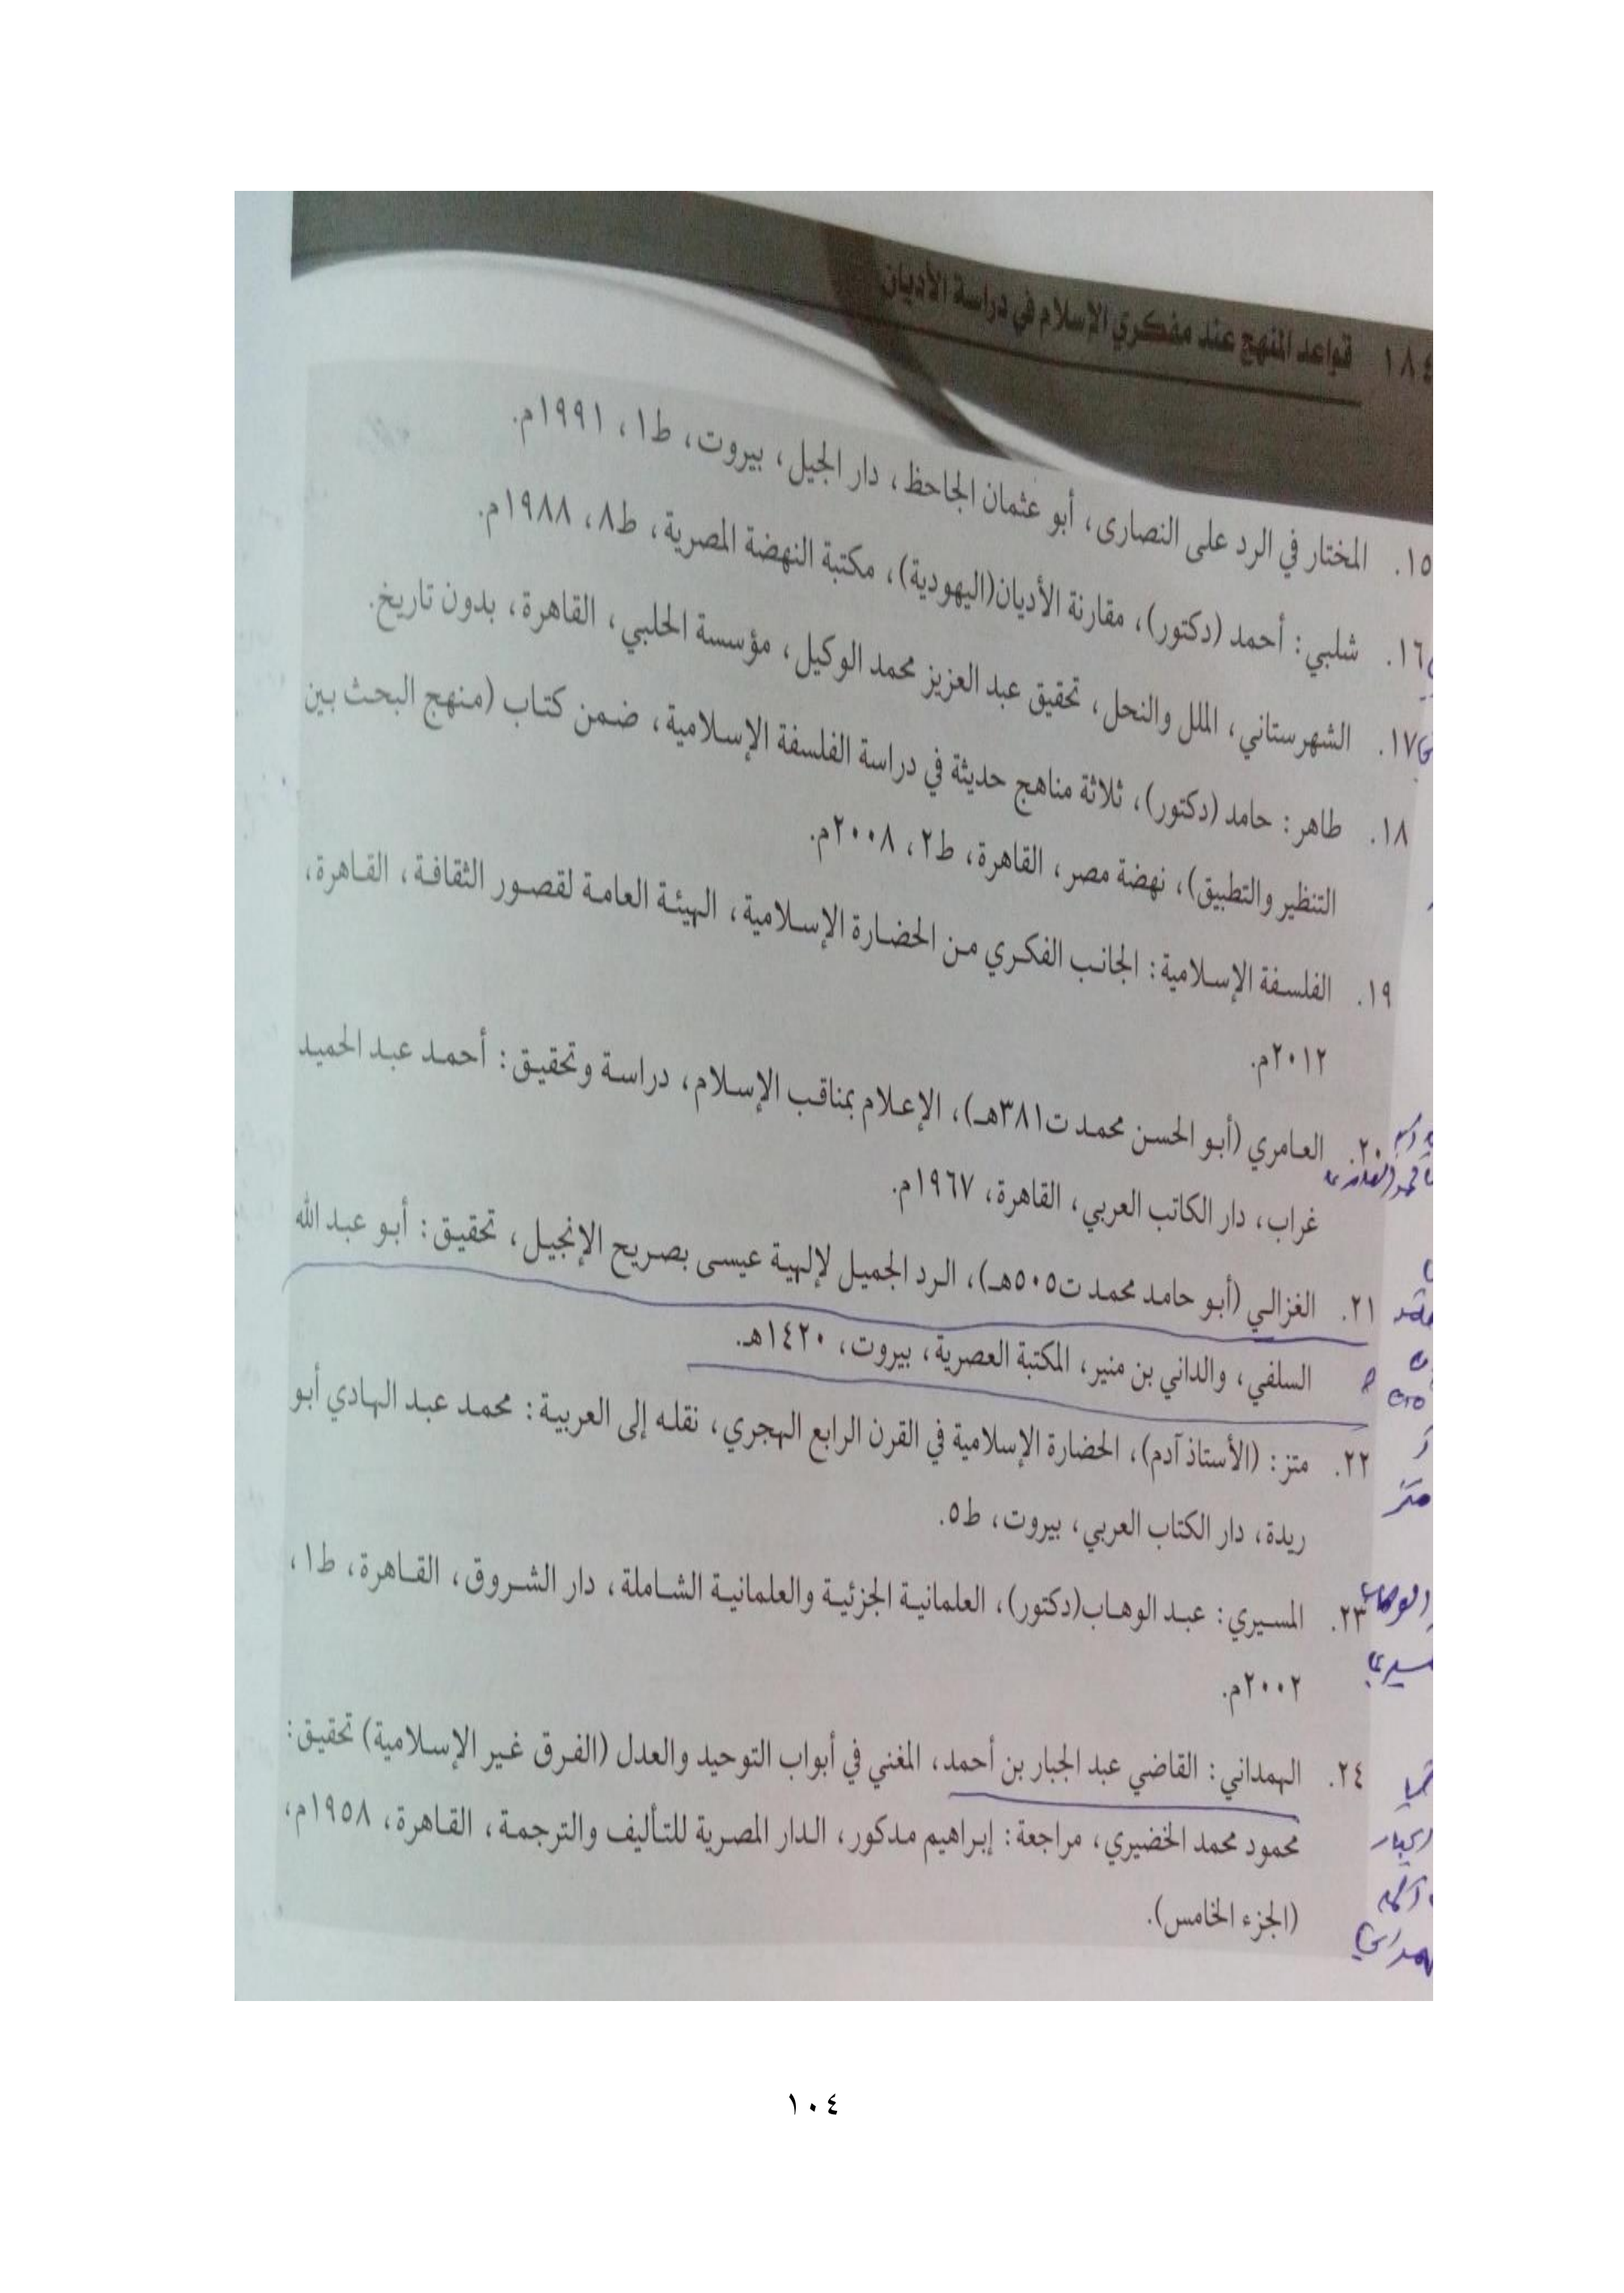 ١٨٤ قواعد المنهج عند مفكري الإسلام في دراسة الأديان
١٥. المختار في الرد على النصارى، أبو عثمان الجاحظ، دار الجيل، بيروت، ط١، ١٩٩١م.
١٦. شلبي: أحمد (دكتور)، مقارنة الأديان(اليهودية)، مكتبة النهضة المصرية، ط٨، ١٩٨٨م.
١٧. الشهرستاني، الملل والنحل، تحقيق عبد العزيز محمد الوكيل، مؤسسة الحلبي، القاهرة، بدون تاريخ.
١٨. طاهر: حامد (دكتور)، ثلاثة مناهج حديثة في دراسة الفلسفة الإسلامية، ضمن كتاب (منهج البحث بين
التنظير والتطبيق)، نهضة مصر، القاهرة، ط٢، ٢٠٠٨م.
١٩. الفلسفة الإسلامية: الجانب الفكري من الحضارة الإسلامية، الهيئة العامة لقصور الثقافة، القاهرة،
٢٠١٢م.
٢٠. العامري (أبو الحسن محمد ت٣٨١هـ)، الإعلام بمناقب الإسلام، دراسة وتحقيق: أحمد عبد الحميد
غراب، دار الكاتب العربي، القاهرة، ١٩٦٧م.
٢١. الغزالي (أبو حامد محمد ت٥٠٥هـ)، الرد الجميل لإلهية عيسى بصريح الإنجيل، تحقيق: أبو عبد الله
السلفي، والداني بن منير، المكتبة العصرية، بيروت، ١٤٢٠هـ.
٢٢. متز: (الأستاذ آدم)، الحضارة الإسلامية في القرن الرابع الهجري، نقله إلى العربية: محمد عبد الهادي أبو
متز
ريدة، دار الكتاب العربي، بيروت، ط٥.
٢٣. المسيري: عبد الوهاب(دكتور)، العلمانية الجزئية والعلمانية الشاملة، دار الشروق، القاهرة، ط١،
٢٠٠٢م.
٢٤. الهمداني: القاضي عبد الجبار بن أحمد، المغني في أبواب التوحيد والعدل (الفرق غير الإسلامية) تحقيق:
محمود محمد الخضيري، مراجعة: إبراهيم مدكور، الدار المصرية للتأليف والترجمة، القاهرة، ١٩٥٨م،
(الجزء الخامس).
١٠٤